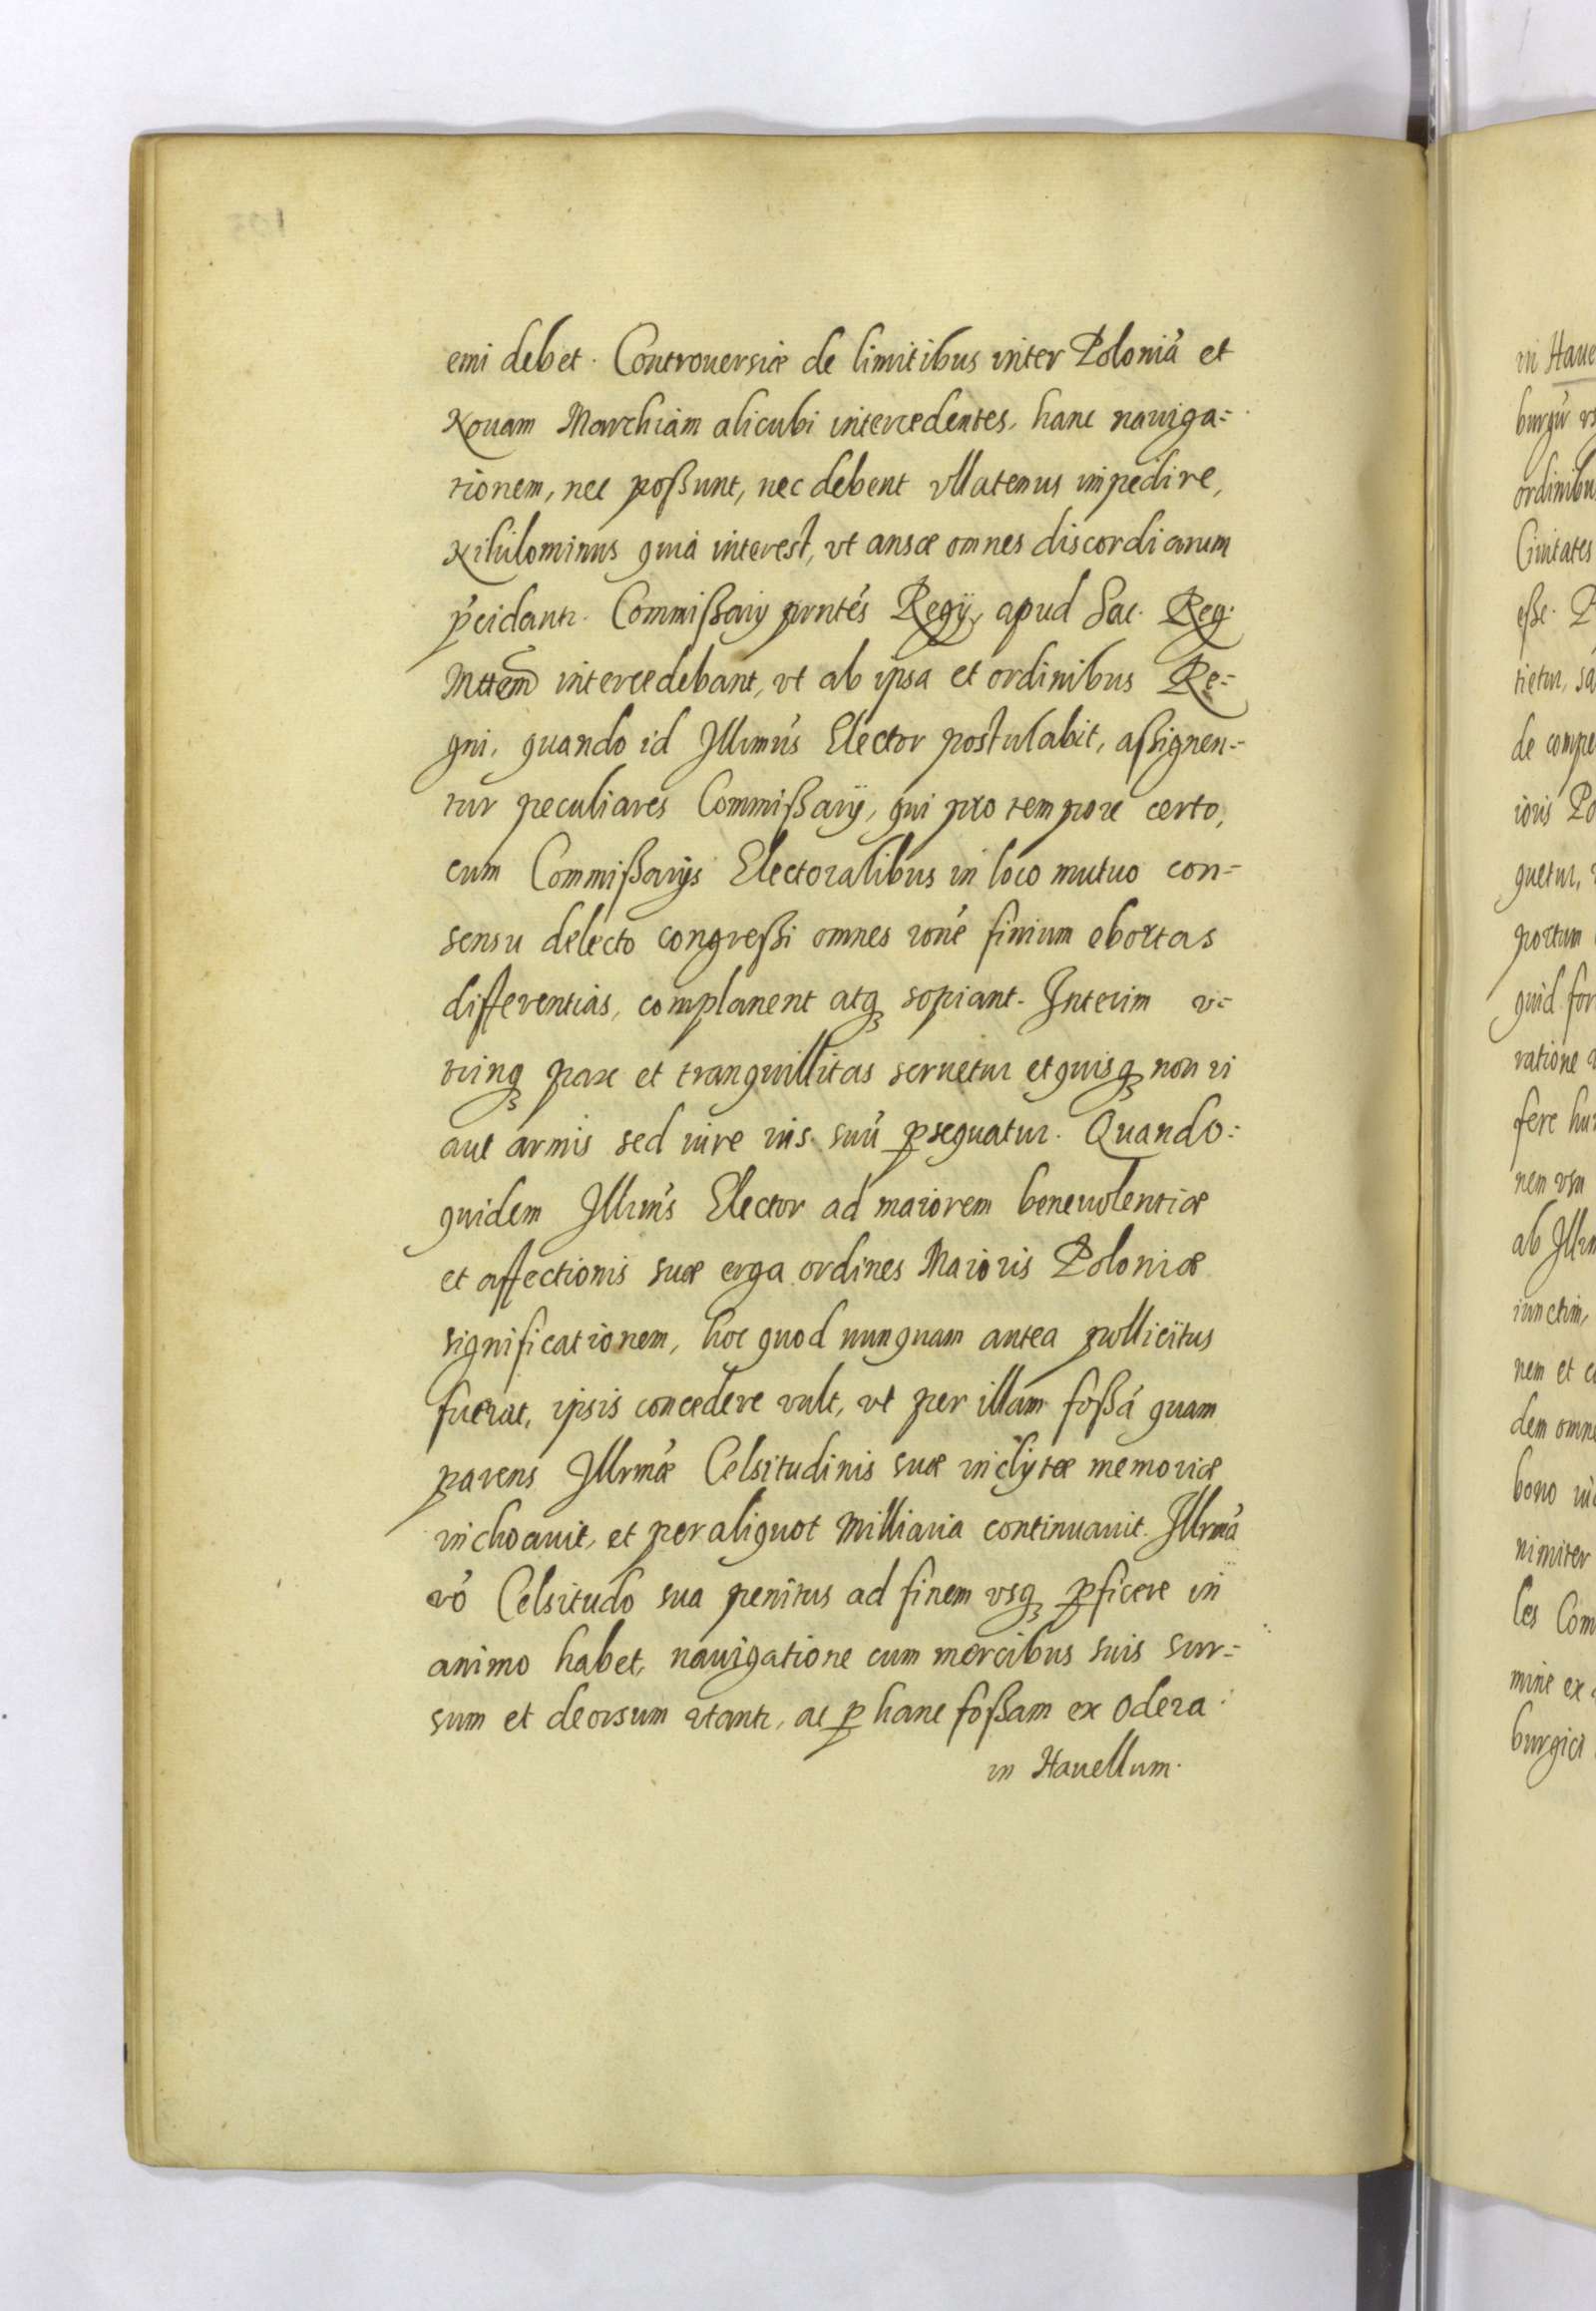 emi debet. Controuersiæ de limitibus inter Poloniā et
Nouam Marchiam alicubi intercedentes, hanc nauiga=
tionem, nec poßunt, nec debent vllatenus impedire,
Nihilominus quia interest, vt ansæ omnes discordiarum
p̄cidantr. Commißarij pn̄tes Regij, apud Sac. Reg.
Mttem intercedebant, vt ab ipsa et ordinibus Re=
gni, quando id Illmus Elector postulabit, aßignen=
tur peculiares Commißarij, qui pro tempore certo,
cum Commißarijs Electoralibus in loco mutuo con=
sensu delecto congreßi omnes rōne finium obortas
differentias, complanent atq; sopiant. Interim v=
trinq; pax et tranquillitas seruetur et quisq; non vi
aut armis sed iure ius suū ꝑsequatur. Quando=
quidem Illmus Elector ad maiorem beneuolentiæ
et affectionis suæ erga ordines Maioris Poloniæ
significationem, hoc quod nunquam antea pollicitus
fuerat, ipsis concedere vult, vt per illam foßā quam
parens Illrmæ Celsitudinis suæ inclytæ memoriæ
inchoauit, et per aliquot Milliaria continuauit. Illrma
vō Celsitudo sua penitus ad finem vsq; ꝑficere in
animo habet, nauigatione cum mercibus suis sur=
sum et deorsum vtantr, ac ꝑ hanc foßam ex Odera
in Hauellum.